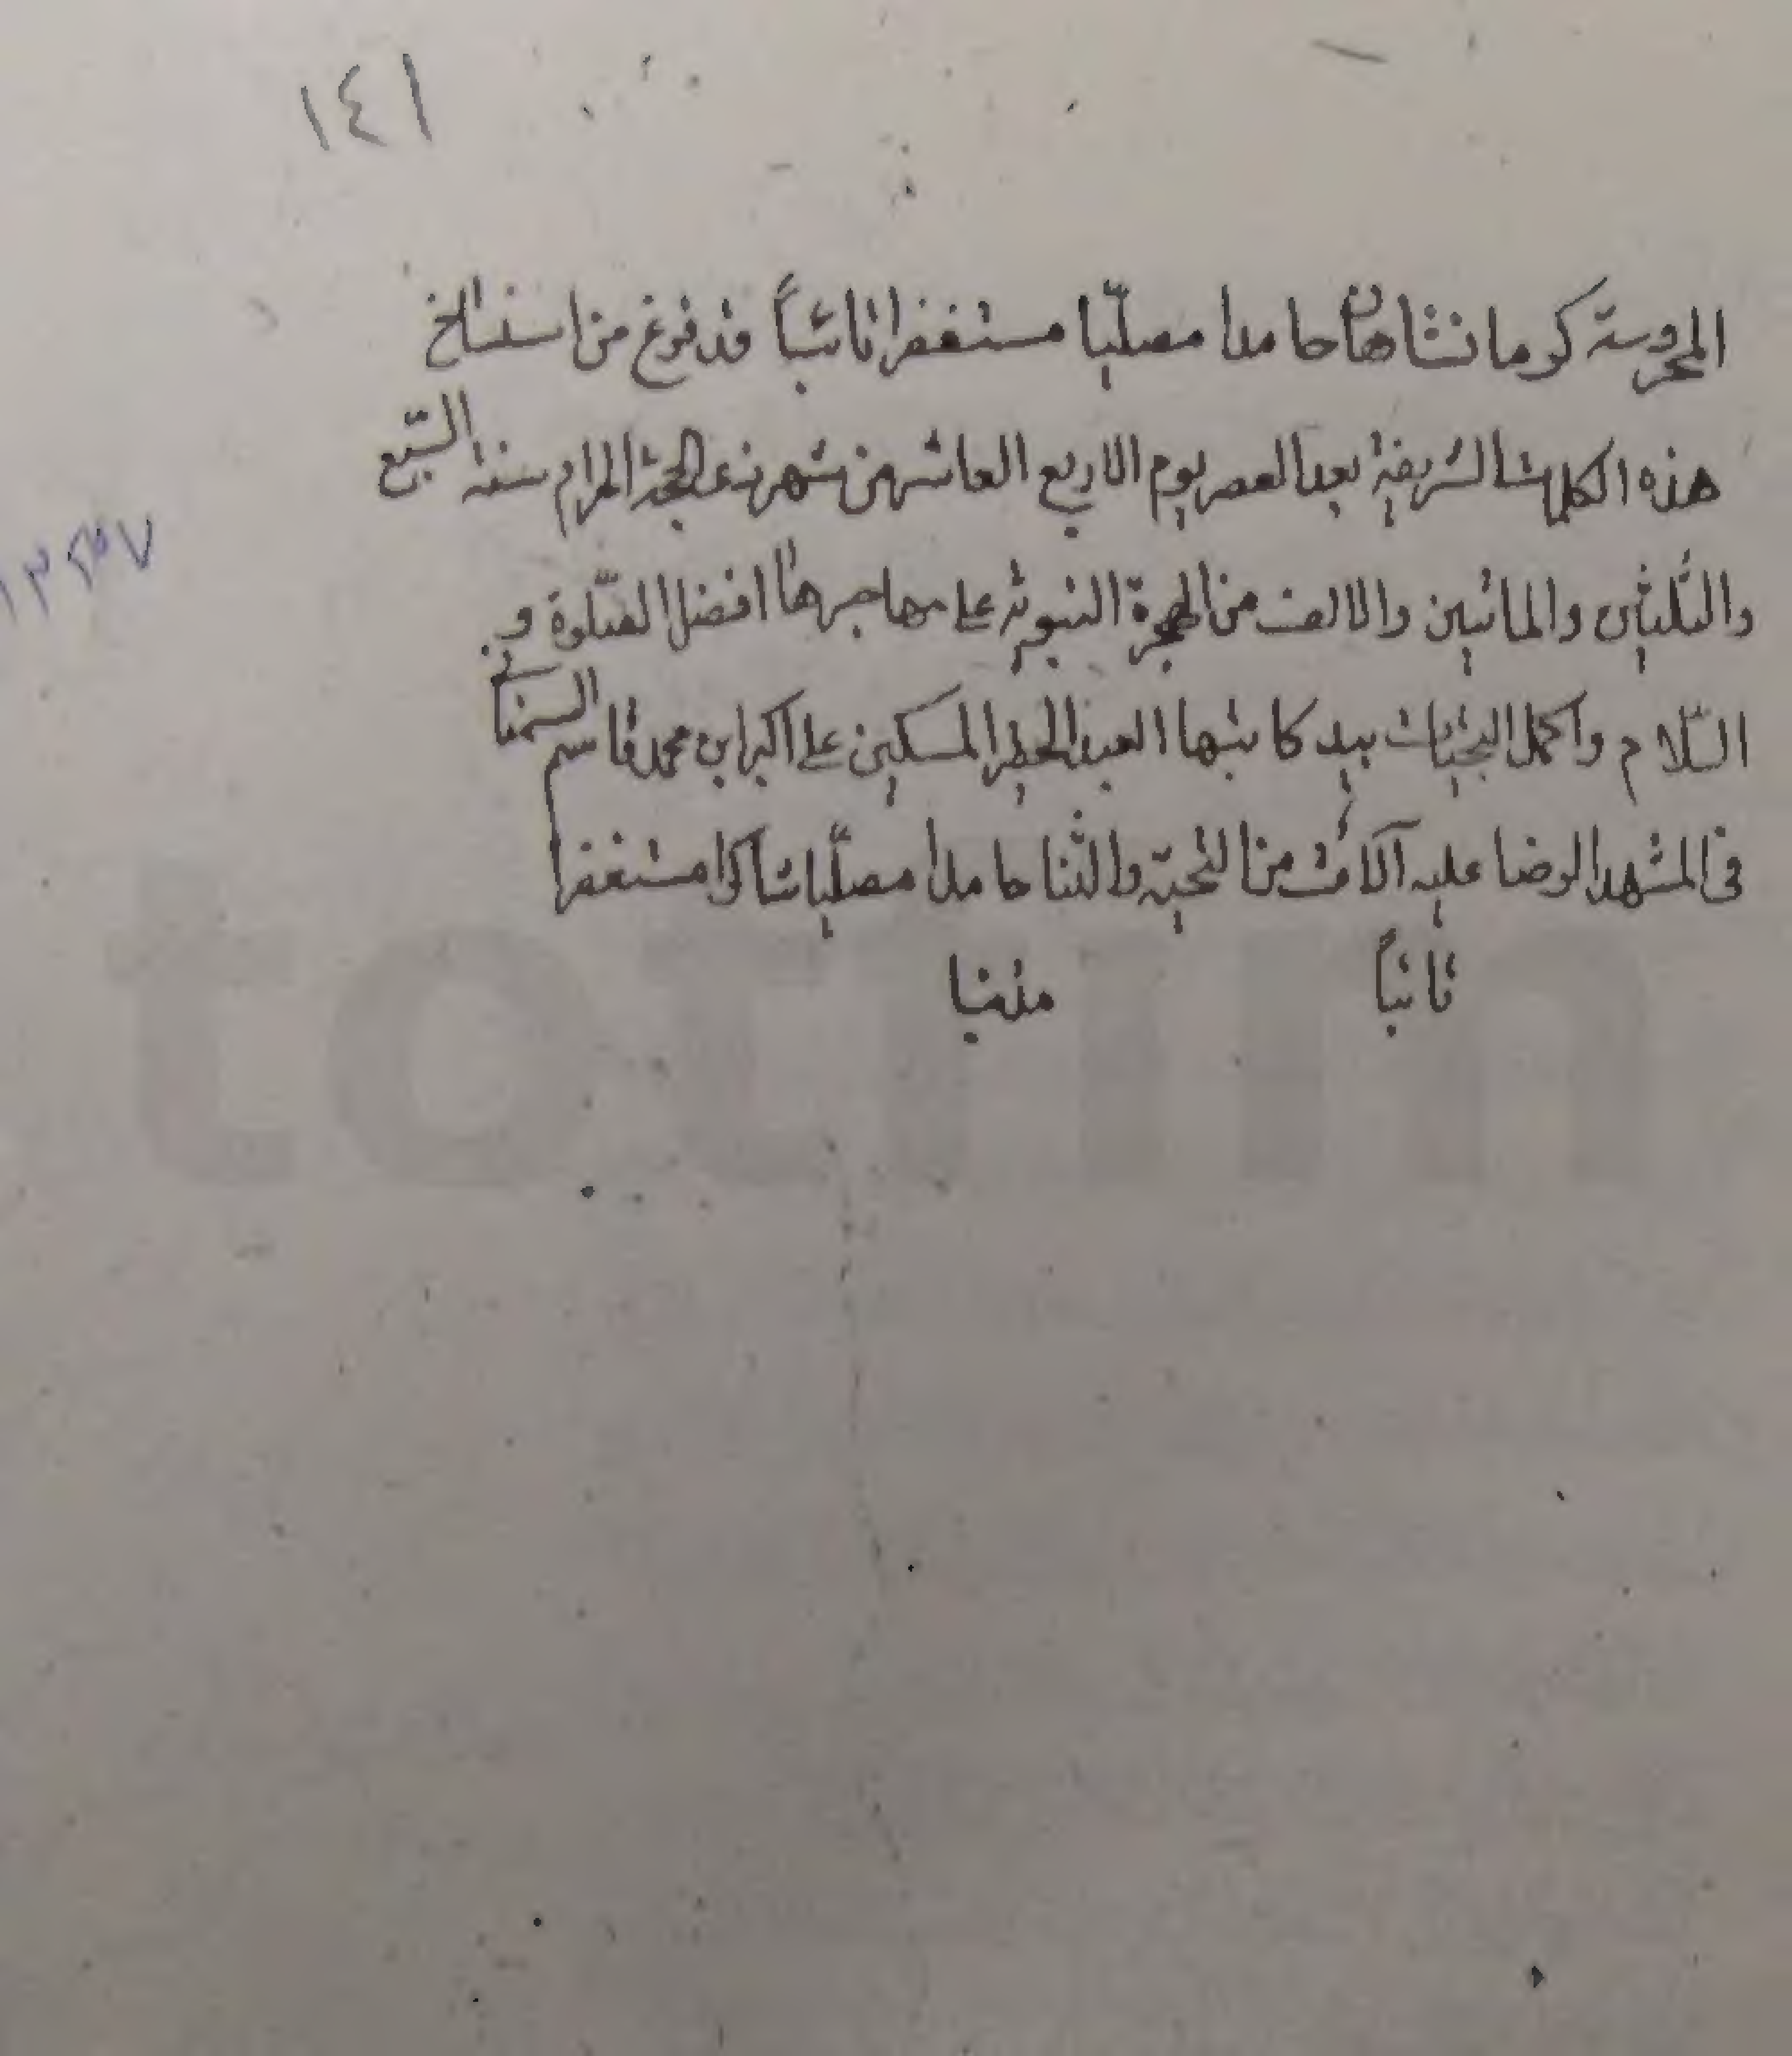 ١٤١
المحروسة كرمانشاهان حامدا مصلّيا مستغفرا تائباً قد فرغ من استنساخ
هذه الكلمات الشريفة بعد العصر يوم الاربع العاشر من شهر ذی الحجة الحرام سنة السّبع
١٢٣٧
والثلثين والمائتين والالف من الهجرة النبوية علی مهاجرها افضل الصّلوة و
السّلام واكمل التحيّات بيد كاتبها العبد الحقير المسكين علی اكبر ابن محمد قاسم السمنانی
فی المشهد الرضا عليه آلاف من التحيّة والثنا حامدا مصلّيا شاكرا مستغفرا
تائباً مذنبا